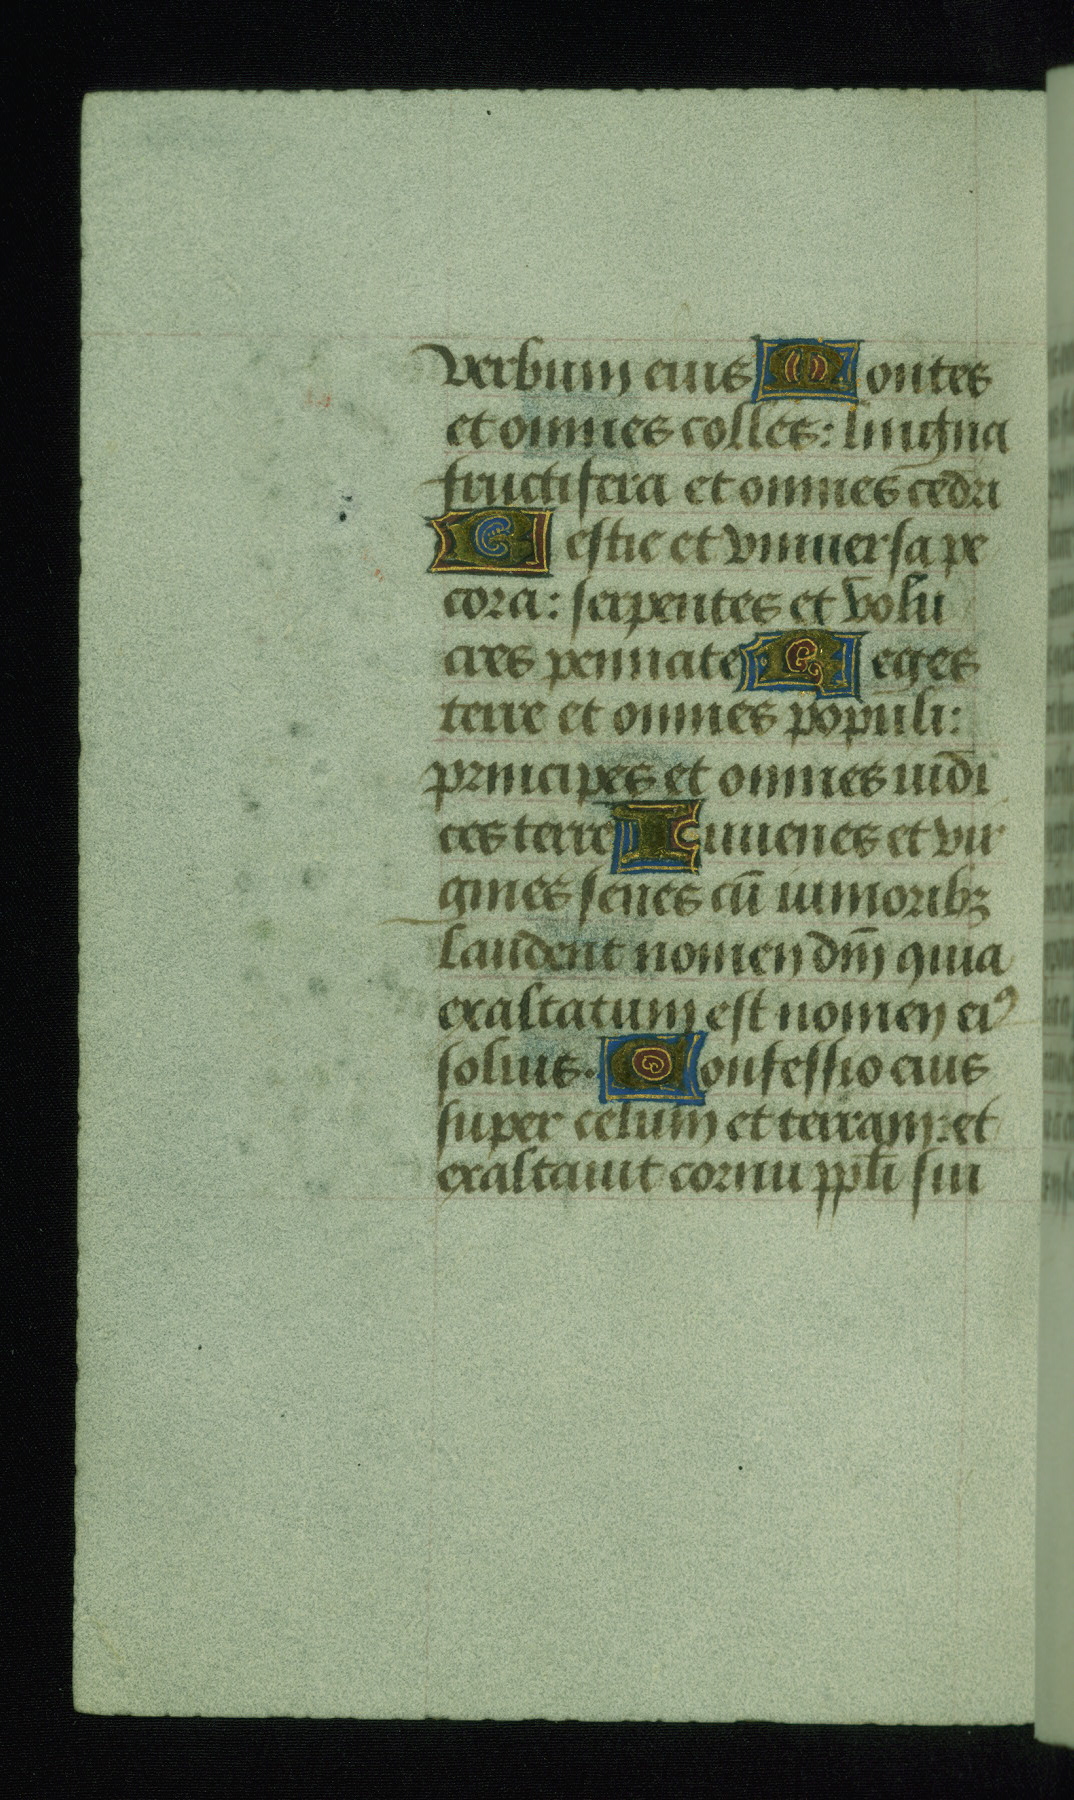 verbum eius Montes
et omnes colles: lingna
fructifera et omnes cedri
Bestie et vniuersa pe
cora: serpentes et volu
cres pennate Reges
terre et omnes populi:
principes et omnes iudi
ces terre Iuuenes et vir
gines senes cū iunioribꝫ
laudent nomen dm̄ quia
exaltatum est nomen eiꝰ
solius. Confessio eius
super celum et terram: et
exaltauit cornu ppl̄i sui